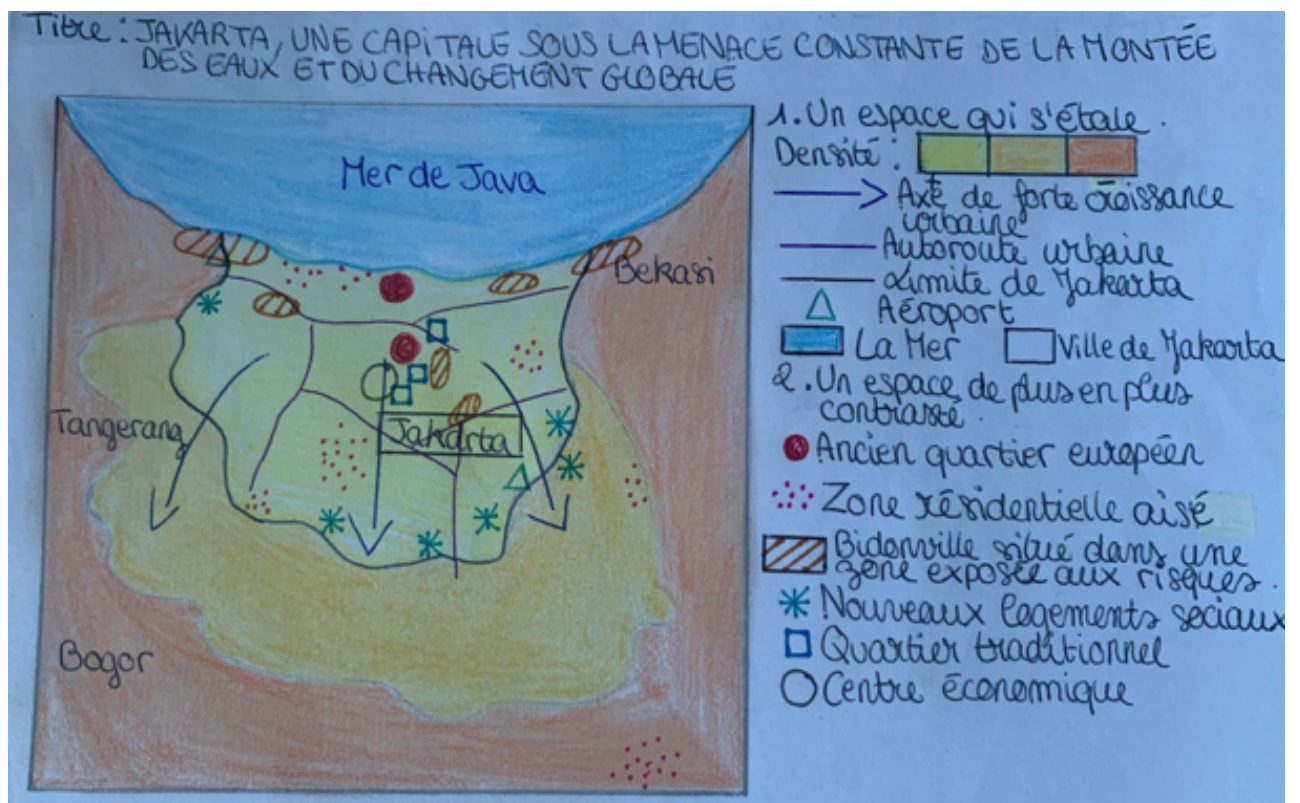 Titre : JAKARTA, UNE CAPITALE SOUS LA MENACE CONSTANTE DE LA MONTÉE
DES EAUX ET DU CHANGEMENT GLOBALE
Mer de Java
Bekasi
Jakarta
Tangerang
Bogor
1. Un espace qui s'étale.
Densité :
Axe de forte croissance
urbaine
Autoroute urbaine
Limite de Jakarta
Aéroport
La Mer
Ville de Jakarta
2. Un espace de plus en plus
contrasté.
Ancien quartier européen
Zone résidentielle aisé
Bidonville situé dans une
zone exposée aux risques.
Nouveaux logements sociaux
Quartier traditionnel
Centre économique